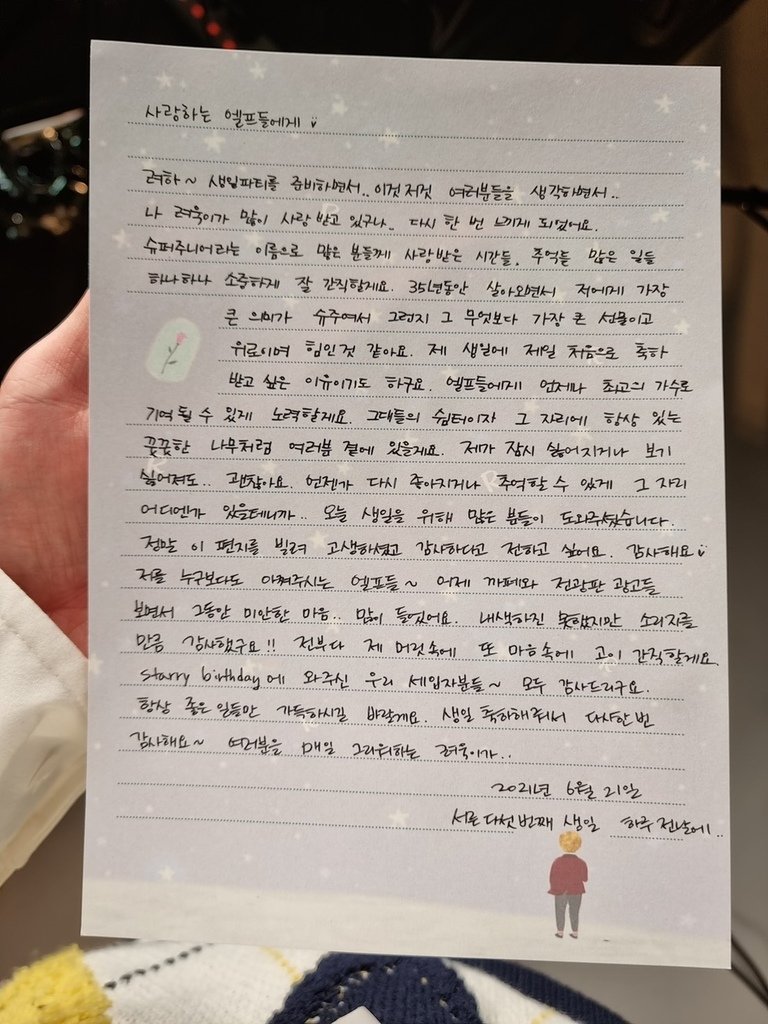 사랑하는 엘프들에게
려하~ 생일파티를 준비하면서.. 이것저것 여러분들을 생각하면서..
나 려욱이가 많이 사랑 받고 있구나.. 다시 한 번 느끼게 되었어요.
슈퍼주니어라는 이름으로 많은 분들께 사랑받은 시간들, 추억들 많은 일들
하나하나 소중하게 잘 간직할게요. 35년동안 살아오면서 저에게 가장
큰 의미가 슈주여서 그런지 그 무엇보다 가장 큰 선물이고
위로이며 힘인것 같아요. 제 생일에 제일 처음으로 축하
받고 싶은 이유이기도 하구요. 엘프들에게 언제나 최고의 가수로
기억될 수 있게 노력할게요. 그대들의 쉼터이자 그 자리에 항상 있는
꿋꿋한 나무처럼 여러분 곁에 있을게요. 제가 잠시 싫어지거나 보기
싫어져도.. 괜찮아요. 언젠가 다시 좋아지거나 추억할 수 있게 그 자리
어디엔가 있을테니까.. 오늘 생일을 위해 많은 분들이 도와주셨습니다.
정말 이 편지를 빌려 고생하셨고 감사하다고 전하고 싶어요. 감사해요
저를 누구보다도 아껴주시는 엘프들~ 어제 까페와 전광판 광고들
보면서 그동안 미안한 마음.. 많이 들었어요. 내색하진 못했지만 소리지를
만큼 감사했구요!! 전부다 제 머릿속에 또 마음속에 고이 간직할게요.
starry birthday에 와주신 우리 세입자분들~ 모두 감사드리구요.
항상 좋은 일들만 가득하시길 바랄게요. 생일 축하해줘서 다시한번
감사해요~ 여러분을 매일 그리워하는 려욱이가..
2021년 6월 21일
서른다섯번째 생일 하루 전날에..